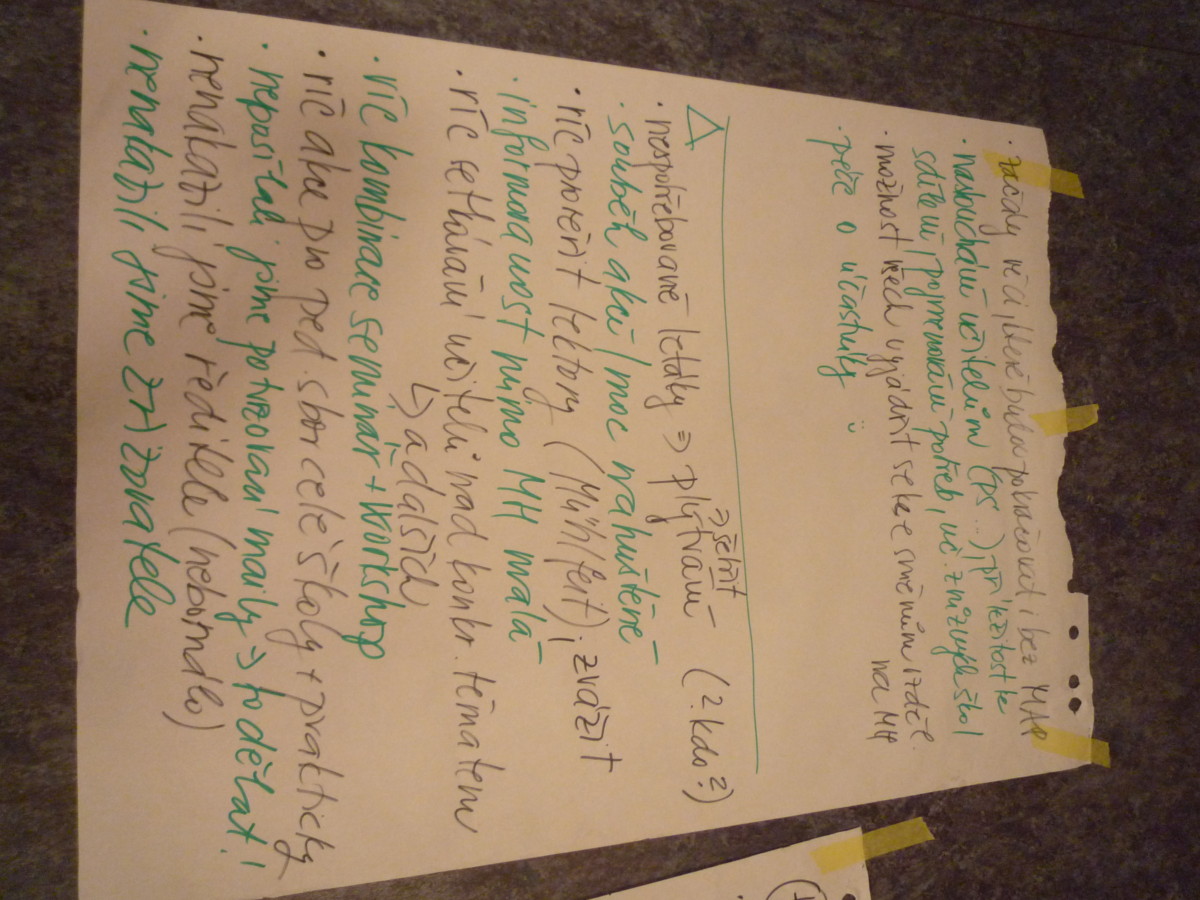 · začaly věci, které budou pokračovat i bez MAP
· naslouchání učitelům (PS...), příležitost ke
sdělení, pojmenování potřeb, uč. z různých škol
· možnost všech vyjádřit se ke směrům vzděl.
na MH
· péče o účastníky ü
△
· nespotřebované letáky => plýtvání (?kdo?)
=> šetřit
· souběh akcí / moc nahuštěné
· víc prověřit lektory (Mühlfeit), zvážit
· informovanost mimo MH malá
· víc setkávání učitelů nad konkr. tématem
↳ a dalších
· víc kombinace seminář + workshop
· víc akce pro ped. sbor celé školy + prakticky
· neposílali jsme potvrzovací maily => to dělat!!
· nenalázili jsme ředitele (nebondlo)
· nenalázili jsme zřizovatele